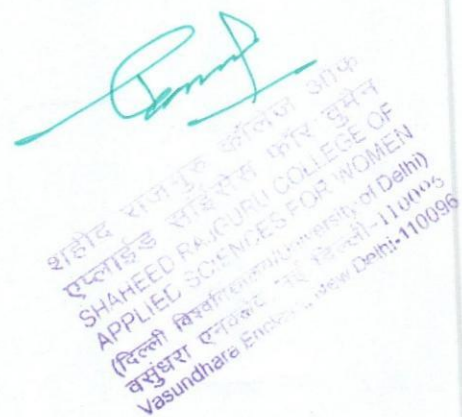 शहीद राजगुरु कॉलेज ऑफ
एप्लाईड साईंसेस फॉर वुमेन
SHAHEED RAJGURU COLLEGE OF
APPLIED SCIENCES FOR WOMEN
(दिल्ली विश्वविद्यालय/University of Delhi)
वसुंधरा एनक्लेव नई दिल्ली-110096
Vasundhara Enclave, New Delhi-110096